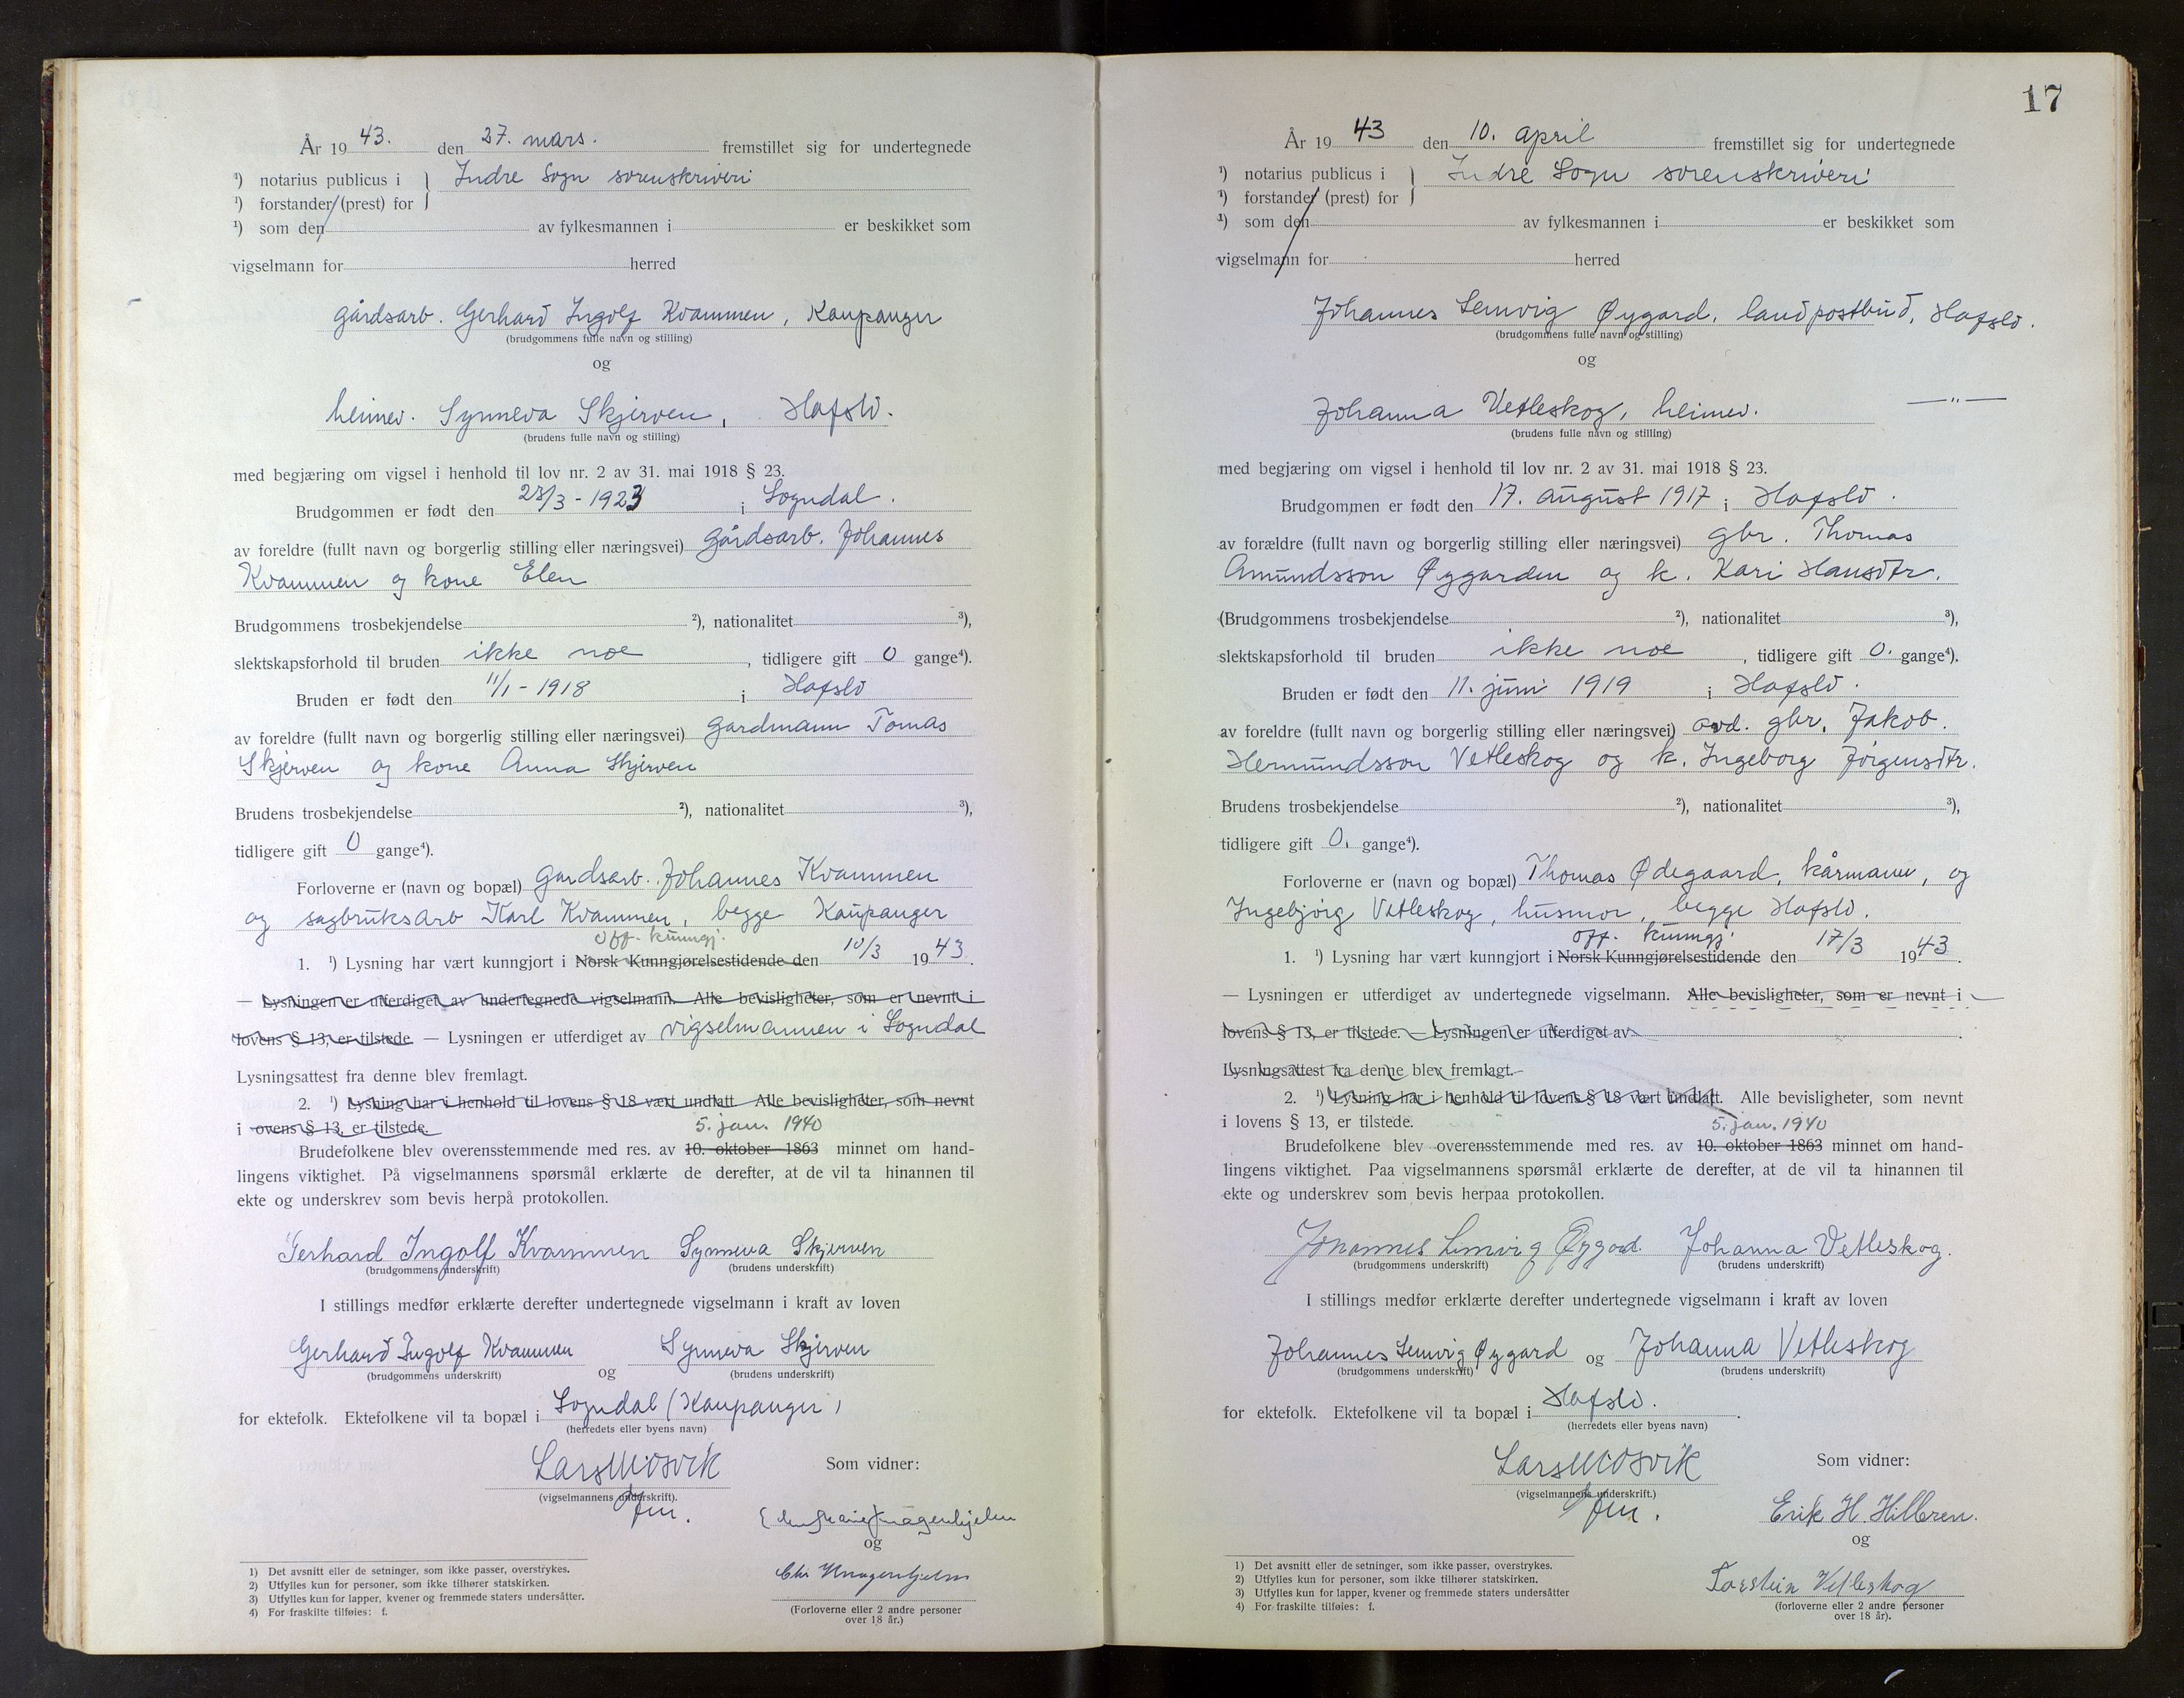 År 1943. den 27. mars. fremstillet sig for undertegnede
¹) notarius publicus i } Indre Sogn sorenskriveri
¹) forstander (prest) for
¹) som den av fylkesmannen i er beskikket som
vigselmann for herred
gårdsarb. Gerhard Ingolf Kvammen, Kaupanger
(brudgommens fulle navn og stilling)
og
heimev. Synneva Skjerven, Hafslo.
(brudens fulle navn og stilling)
med begjæring om vigsel i henhold til lov nr. 2 av 31. mai 1918 § 23.
Brudgommen er født den 23/3 - 1923 i Sogndal.
av foreldre (fullt navn og borgerlig stilling eller næringsvei) gårdsarb. Johannes
Kvammen og kone Elen
Brudgommens trosbekjendelse ²), nationalitet ³),
slektskapsforhold til bruden ikke noe, tidligere gift 0 gange⁴).
Bruden er født den 11/1 - 1918 i Hafslo
av foreldre (fullt navn og borgerlig stilling eller næringsvei) gardmann Tomas
Skjerven og kone Anna Skjerven
Brudens trosbekjendelse ²), nationalitet ³),
tidligere gift 0 gange⁴).
Forloverne er (navn og bopæl) gardsarb. Johannes Kvammen
og sagbruksarb Karl Kvammen, begge Kaupanger
off. kunngj.
1. ¹) Lysning har vært kunngjort i Norsk Kunngjørelsestidende den 10/3 1943.
— Lysningen er utferdiget av undertegnede vigselmann. Alle bevisligheter, som er nevnt i
lovens § 13, er tilstede. — Lysningen er utferdiget av vigselmannen i Sogndal
Lysningsattest fra denne blev fremlagt.
2. ¹) Lysning har i henhold til lovens § 18 vært undlatt. Alle bevisligheter, som nevnt
i ovens § 13, er tilstede. 5. jan. 1940
Brudefolkene blev overensstemmende med res. av 10. oktober 1863 minnet om hand-
lingens viktighet. På vigselmannens spørsmål erklærte de derefter, at de vil ta hinannen til
ekte og underskrev som bevis herpå protokollen.
Gerhard Ingolf Kvammen Synneva Skjerven
(brudgommens underskrift) (brudens underskrift)
I stillings medfør erklærte derefter undertegnede vigselmann i kraft av loven
Gerhard Ingolf Kvammen og Synneva Skjerven
(brudgommens underskrift) (brudens underskrift)
for ektefolk. Ektefolkene vil ta bopæl i Sogndal (Kaupanger)
(herredets eller byens navn)
Lars Midsvik Som vidner:
(vigselmannens underskrift).
fm.
og
Chr Knagenhjelm
1) Det avsnitt eller de setninger, som ikke passer, overstrykes.
2) Utfylles kun for personer, som ikke tilhører statskirken.
3) Utfylles kun for lapper, kvener og fremmede staters undersåtter.
4) For fraskilte tilføies: f.
(Forloverne eller 2 andre personer
over 18 år.)
17
År 1943 den 10. april fremstillet sig for undertegnede
¹) notarius publicus i } Indre Sogn sorenskriveri
¹) forstander (prest) for
¹) som den av fylkesmannen i er beskikket som
vigselmann for herred
Johannes Lemvig Øygard, landpostbud, Hafslo.
(brudgommens fulle navn og stilling)
og
Johanna Vetleskog, heimev. —"—
(brudens fulle navn og stilling)
med begjæring om vigsel i henhold til lov nr. 2 av 31. mai 1918 § 23.
Brudgommen er født den 17. august 1917 i Hafslo.
av forældre (fullt navn og borgerlig stilling eller næringsvei) gbr. Thomas
Amundsson Øygarden og k. Kari Hansdtr.
(Brudgommens trosbekjendelse ²), nationalitet ³),
slektskapsforhold til bruden ikke noe, tidligere gift 0. gange⁴).
Bruden er født den 11. juni 1919 i Hafslo.
av foreldre (fullt navn og borgerlig stilling eller næringsvei) avd. gbr. Jakob
Hermundsson Vetleskog og k. Ingeborg Jørgensdtr.
Brudens trosbekjendelse ²), nationalitet ³),
tidligere gift 0. gange⁴).
Forloverne er (navn og bopæl) Thomas Ødegaard, kårmann, og
Ingebjørg Vetleskog, husmor, begge Hafslo.
off. kunngj.
1. ¹) Lysning har vært kunngjort i Norsk Kunngjørelsestidende den 17/3 1943.
— Lysningen er utferdiget av undertegnede vigselmann. Alle bevisligheter, som er nevnt i
lovens § 13, er tilstede. — Lysningen er utferdiget av
Lysningsattest fra denne blev fremlagt.
2. ¹) Lysning har i henhold til lovens § 18 vært undlatt. Alle bevisligheter, som nevnt
i lovens § 13, er tilstede. 5. jan. 1940
Brudefolkene blev overensstemmende med res. av 10. oktober 1863 minnet om hand-
lingens viktighet. Paa vigselmannens spørsmål erklærte de derefter, at de vil ta hinannen til
ekte og underskrev som bevis herpaa protokollen.
Johannes Lemvig Øygard Johanna Vetleskog.
(brudgommens underskrift) (brudens underskrift)
I stillings medfør erklærte derefter undertegnede vigselmann i kraft av loven
Johannes Lemvig Øygard og Johanna Vetleskog
(brudgommens underskrift) (brudens underskrift)
for ektefolk. Ektefolkene vil ta bopæl i Hafslo.
(herredets eller byens navn)
Lars Midsvik Som vidner:
(vigselmannens underskrift.)
fm. Erik H. Hilleren.
og
Torstein Vetleskog
1) Det avsnitt eller de setninger, som ikke passer, overstrykes.
2) Utfylles kun for personer, som ikke tilhører statskirken.
3) Utfylles kun for lapper, kvener og fremmede staters undersåtter
4) For fraskilte tilføies: f.
(forloverne eller 2 andre personer
over 18 år).